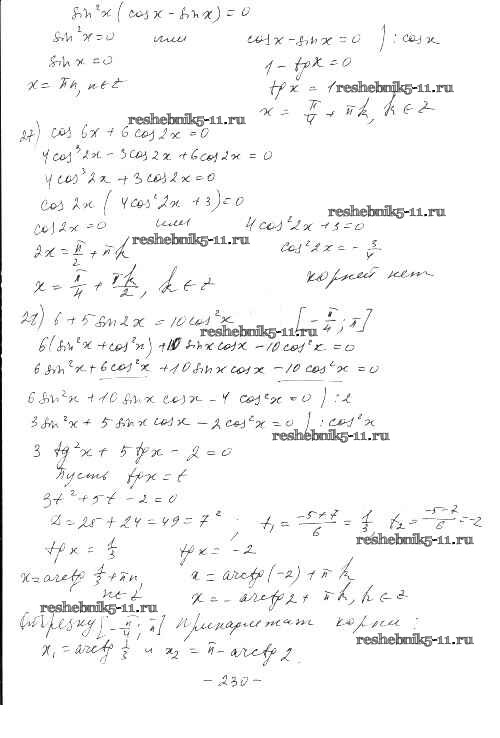 sin²x(cosx - sinx) = 0
sin²x = 0 или cosx - sinx = 0 ) : cosx
sinx = 0 1 - tgx = 0
x = πn, n ∈ Z tgx = 1 reshebnik5-11.ru
x = π/4 + πk, k ∈ Z
reshebnik5-11.ru
27) cos6x + 6cos2x = 0
4cos³2x - 3cos2x + 6cos2x = 0
4cos³2x + 3cos2x = 0
cos2x(4cos²2x + 3) = 0
reshebnik5-11.ru
cos2x = 0 или 4cos²2x + 3 = 0
2x = π/2 + πk reshebnik5-11.ru cos²2x = -3/4
x = π/4 + πk/2, k ∈ Z корней нет
28) 6 + 5sin2x = 10cos²x [-π/4; π]
reshebnik5-11.ru
6(sin²x + cos²x) + 10sinxcosx - 10cos²x = 0
6sin²x + 6cos²x + 10sinxcosx - 10cos²x = 0
6sin²x + 10sinxcosx - 4cos²x = 0 ) : 2
3sin²x + 5sinxcosx - 2cos²x = 0 ) : cos²x
reshebnik5-11.ru
3tg²x + 5tgx - 2 = 0
Пусть tgx = t
3t² + 5t - 2 = 0
D = 25 + 24 = 49 = 7²; t₁ = (-5+7)/6 = 1/3, t₂ = (-5-7)/6 = -2
reshebnik5-11.ru
tgx = 1/3 tgx = -2
x = arctg 1/3 + πn, x = arctg(-2) + πk
n ∈ Z x = -arctg2 + πk, k ∈ Z
reshebnik5-11.ru
Отрезку [-π/4; π] принадлежат корни:
reshebnik5-11.ru
x₁ = arctg 1/3 и x₂ = π - arctg2.
- 230 -